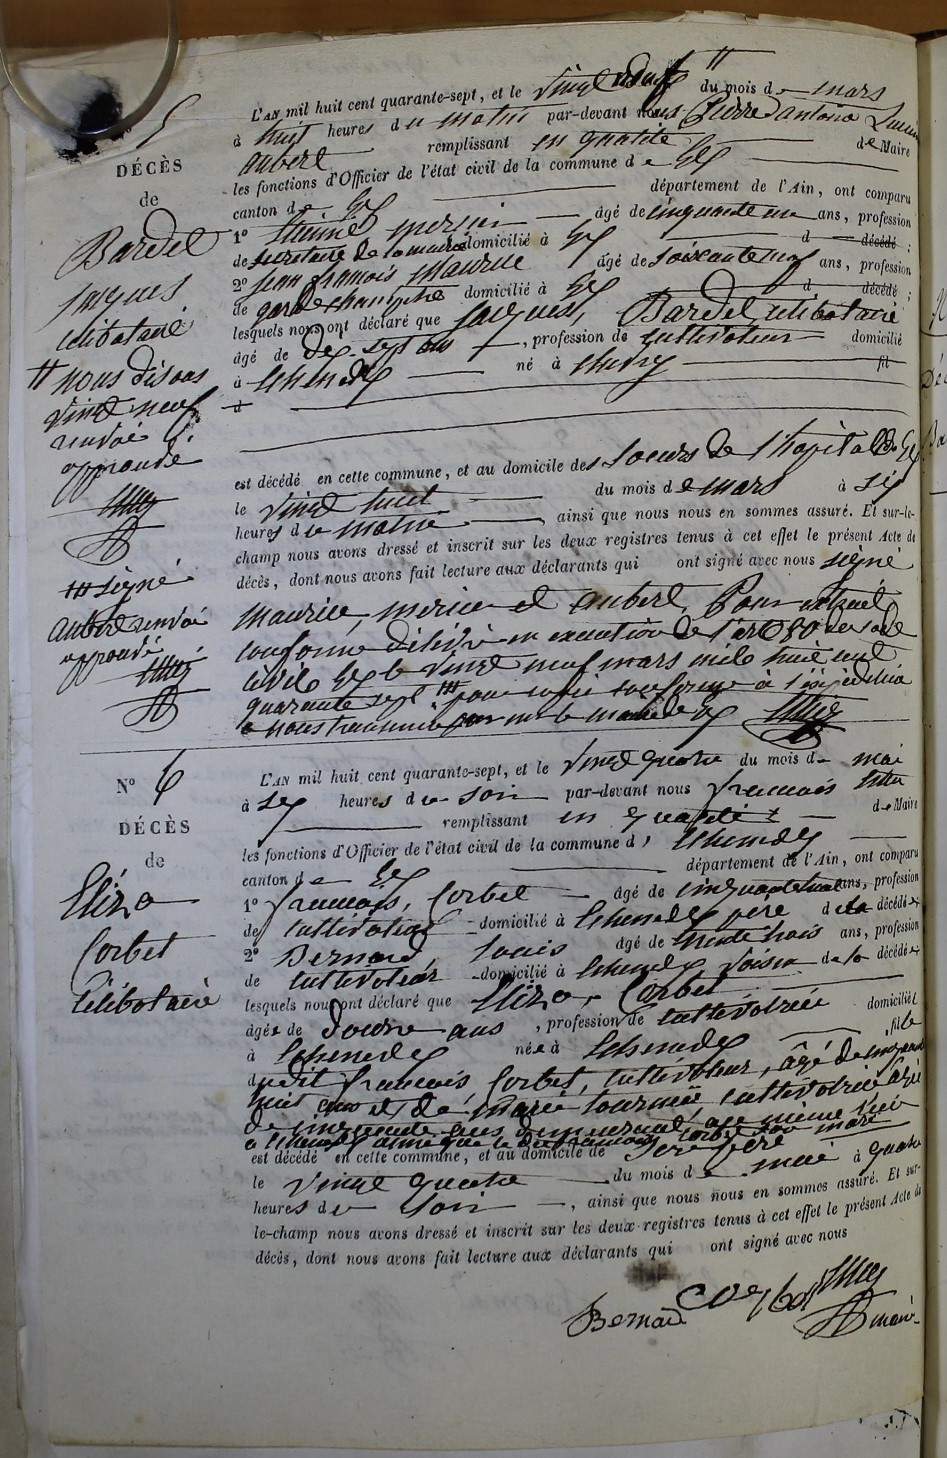 N° 5
DÉCÈS
de
Bardel
Jacques
célibataire
# nous disons
vingt neuf
renvoi
approuvé
### signé
aubert renvoi
approuvé
L'AN mil huit cent quarante-sept, et le vingt neuf # du mois de mars
à huit heures du matin par-devant nous Pierre antoine
aubert remplissant en qualité de Maire
les fonctions d'Officier de l'état civil de la commune de Gex
canton de Gex département de l'Ain, ont comparu
1° Mercier âgé de cinquante un ans, profession
de secrétaire de la mairie domicilié à Gex d décédé ;
2° Jean françois Maurice âgé de soixante neuf ans, profession
de garde champêtre domicilié à Gex d décédé ;
lesquels nous ont déclaré que Jacques, Bardel célibataire
âgé de dix sept ans, profession de cultivateur domicilié
à Echenevex né à Chevry fil
d
est décédé en cette commune, et au domicile des Soeurs de l'hopital de Gex
le vingt huit du mois de mars à six
heures du matin, ainsi que nous nous en sommes assuré. Et sur-le-
champ nous avons dressé et inscrit sur les deux registres tenus à cet effet le présent Acte de
décès, dont nous avons fait lecture aux déclarants qui ont signé avec nous signé
Maurice, mercier et aubert, Pour extrait
conforme délivré en exécution de l'art 80 du code
civil Gex le vingt neuf mars mile huit cent
quarante sept ### pour copie conforme à l'expédition
à nous transmise par mr le maire de Gex
N° 6
DÉCÈS
de
Eliza
Corbet
Célibataire
L'AN mil huit cent quarante-sept, et le vingt quatre du mois de mai
à six heures du soir par-devant nous françois
remplissant en qualité de Maire
les fonctions d'Officier de l'état civil de la commune d'Echenevex
canton de Gex département de l'Ain, ont comparu
1° françois, Corbet âgé de cinquante huit ans, profession
de cultivateur domicilié à Echenevex père de la décédée
2° Bernard, Louis âgé de trente trois ans, profession
de cultivateur domicilié à Echenevex voisin de la décédée
lesquels nous ont déclaré que Eliza, Corbet
âgée de douze ans, profession de cultivatrice domiciliée
à Echenevex née à Echenevex fille
dudit françois Corbet, cultivateur, âgé de cinquante
huit ans et de marie tournier cultivatrice âgée
de cinquante
à Echenevex ainsi que le dit françois Corbet son mari
est décédé en cette commune, et au domicile de son père
le vingt quatre du mois de mai à quatre
heures du soir, ainsi que nous nous en sommes assuré. Et sur-
le-champ nous avons dressé et inscrit sur les deux registres tenus à cet effet le présent Acte de
décès, dont nous avons fait lecture aux déclarants qui ont signé avec nous
Bernard Corbet
maire